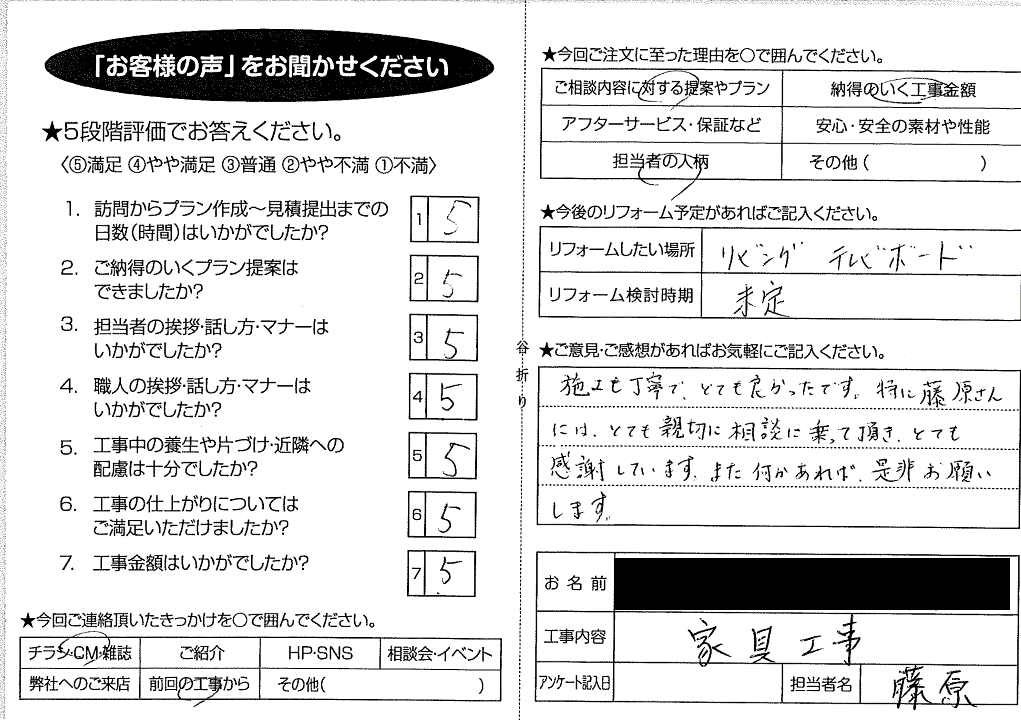 「お客様の声」をお聞かせください
★5段階評価でお答えください。
〈⑤満足 ④やや満足 ③普通 ②やや不満 ①不満〉
1. 訪問からプラン作成〜見積提出までの
日数(時間)はいかがでしたか?
1 5
2. ご納得のいくプラン提案は
できましたか?
2 5
3. 担当者の挨拶・話し方・マナーは
いかがでしたか?
3 5
4. 職人の挨拶・話し方・マナーは
いかがでしたか?
4 5
5. 工事中の養生や片づけ・近隣への
配慮は十分でしたか?
5 5
6. 工事の仕上がりについては
ご満足いただけましたか?
6 5
7. 工事金額はいかがでしたか?
7 5
★今回ご連絡頂いたきっかけを○で囲んでください。
チラシ・CM・雑誌 ご紹介 HP・SNS 相談会・イベント
弊社へのご来店 前回の工事から その他( )
谷折り
★今回ご注文に至った理由を○で囲んでください。
ご相談内容に対する提案やプラン 納得のいく工事金額
アフターサービス・保証など 安心・安全の素材や性能
担当者の人柄 その他( )
★今後のリフォーム予定があればご記入ください。
リフォームしたい場所 リビング テレビボード
リフォーム検討時期 未定
★ご意見・ご感想があればお気軽にご記入ください。
施工も丁寧で、とても良かったです。特に藤原さん
には、とても親切に相談に乗って頂き、とても
感謝しています。また何かあれば、是非お願い
します。
お名前
工事内容 家具工事
アンケート記入日 担当者名 藤原